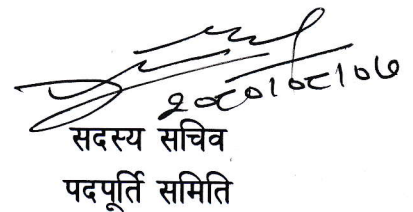 २०८०।०८।०७
सदस्य सचिव
पदपूर्ति समिति